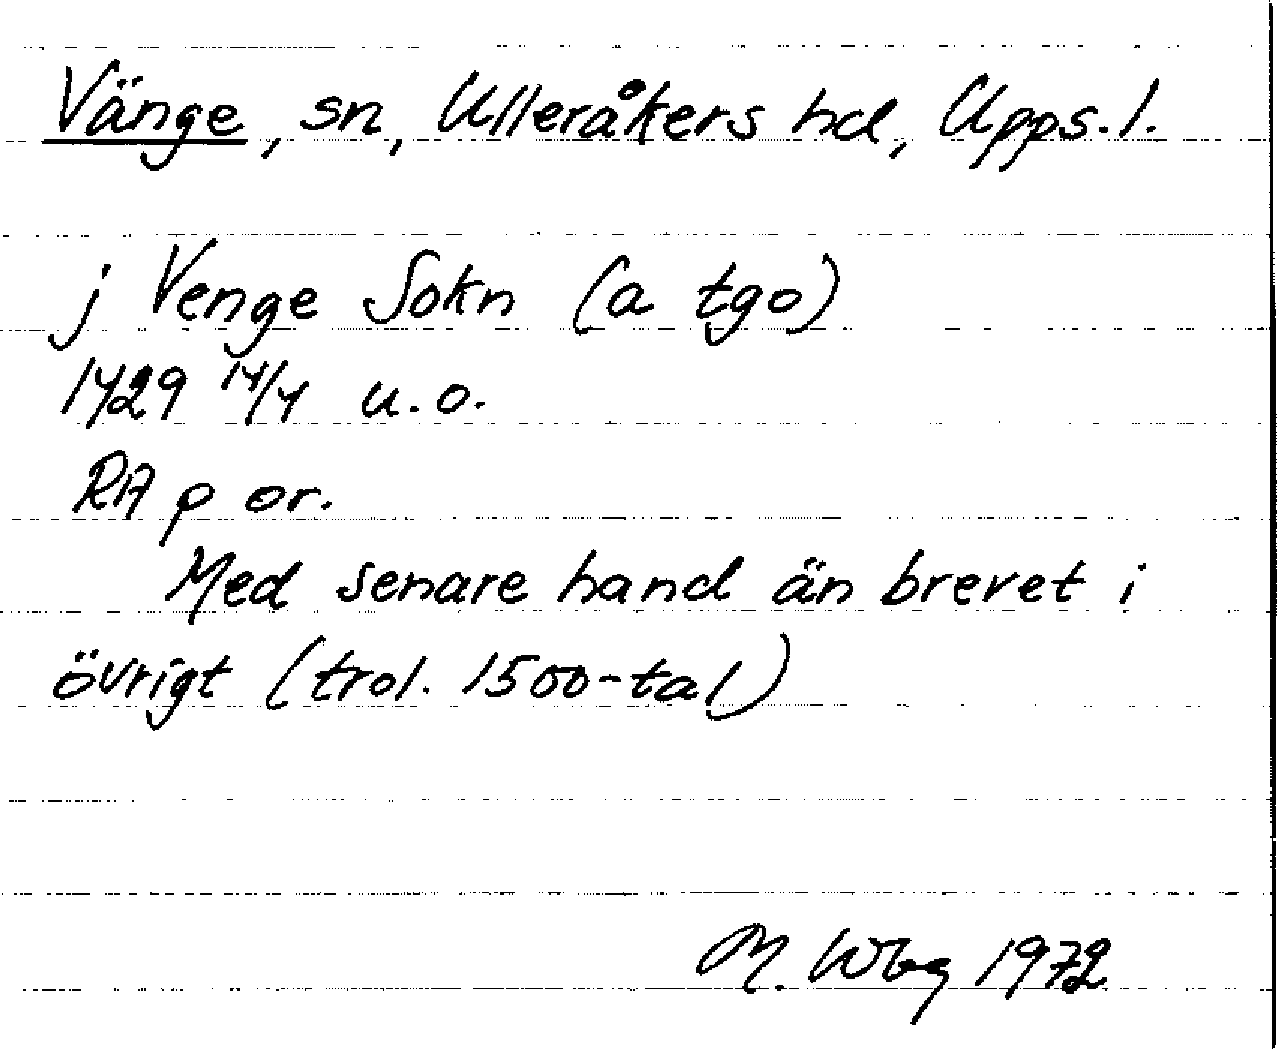 Vänge, sn, Ulleråkers hd, Upps. l.
j Venge Sokn (a tgo)
1429 14/4 u. o.
RA p or.
Med senare hand än brevet i
övrigt (trol. 1500-tal)
M. Wbg 1972